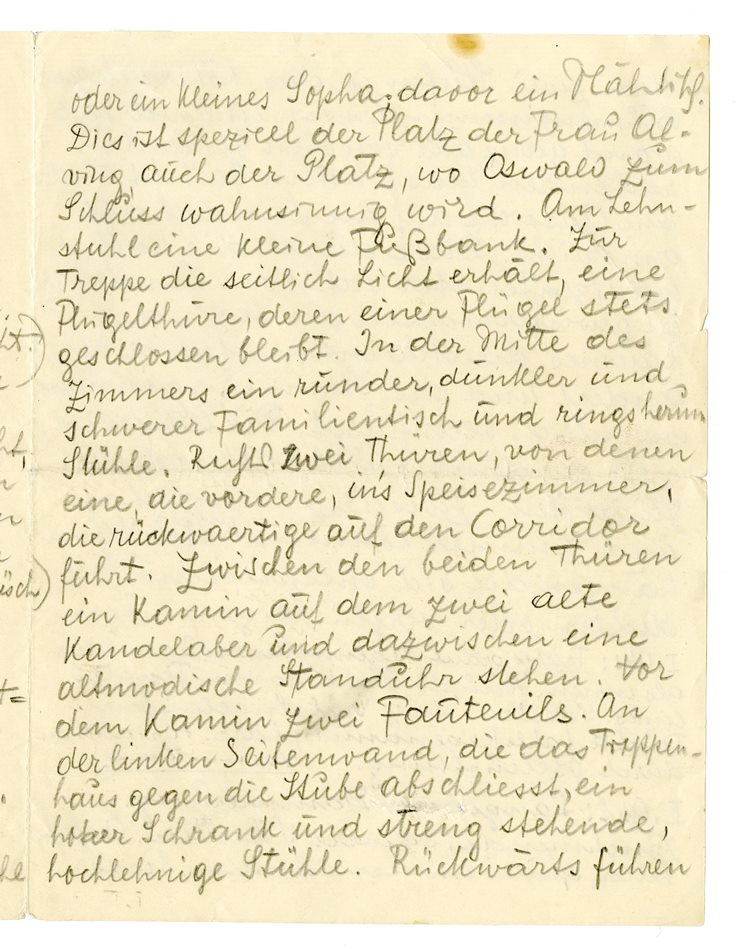 oder ein kleines Sopha, davor ein Nähtisch.
Dies ist speziell der Platz der Frau Al-
ving, auch der Platz, wo Oswald zum
Schluss wahnsinnig wird. Am Lehn-
stuhl eine kleine Fußbank. Zur
Treppe die seitlich Licht erhält, eine
Flügelthüre, deren einer Flügel stets
geschlossen bleibt. In der Mitte des
Zimmers ein runder, dunkler und
schwerer Familientisch und ringsherum
Stühle. Rechts zwei Thüren, von denen
eine, die vordere, in's Speisezimmer,
die rückwaertige auf den Corridor
führt. Zwischen den beiden Thüren
ein Kamin auf dem zwei alte
Kandelaber und dazwischen eine
altmodische Standuhr stehen. Vor
dem Kamin zwei Fauteuils. An
der linken Seitenwand, die das Treppen-
haus gegen die Stube abschliesst, ein
hoher Schrank und streng stehende,
hochlehnige Stühle. Rückwärts führen